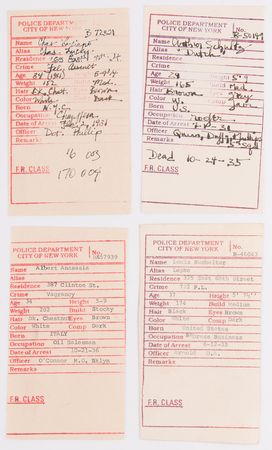 POLICE DEPARTMENT
CITY OF NEW YORK
No. B 72321
Name Chas. Luciano
Alias Chas. Lucky
Residence
Crime Fel. Assault
Age 34 (1931) Height
Weight Build Med.
Hair Dk. Chest. Eyes Brown
Color White Comp Dark
Born N.Y.C.
Occupation Chauffeur
Date of Arrest 1931
Officer Det. Phillip
Remarks
F.R. CLASS
POLICE DEPARTMENT
CITY OF NEW YORK
No.
Name Arthur Schultz
Alias Dutch
Residence
Crime
Age Height 5' 9
Weight 165 Build Med
Hair Brown Eyes Grey
Color W. Comp
Born U.S.
Occupation Roofer
Date of Arrest
Officer
Remarks
Dead 10-24-35
F.R. CLASS
POLICE DEPARTMENT
CITY OF NEW YORK
No.
Name Albert Anastasia
Alias
Residence 387 Clinton St.
Crime Vagrancy
Age 34 Height 5-9
Weight 202 Build Stocky
Hair Dk. Chestnut Eyes Brown
Color White Comp Dark
Born ITALY
Occupation Oil Salesman
Date of Arrest 10-21-36
Officer O'Connor M.O. Bklyn
Remarks
F.R. CLASS
POLICE DEPARTMENT
CITY OF NEW YORK
No.
Name Louis Buchalter
Alias Lepke
Residence 325 East 48th Street
Crime P.L.
Age 37 Height
Weight 174 Build Medium
Hair Black Eyes Brown
Color White Comp Dark
Born United States
Occupation Business
Date of Arrest 6-12-33
Officer Arnold D.A.
Remarks
F.R. CLASS